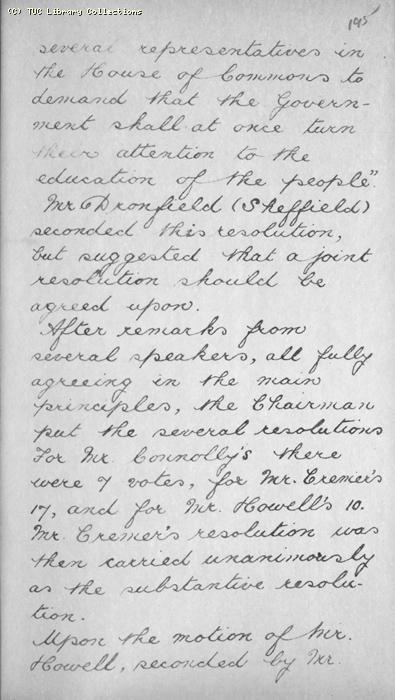 (C) TUC Library Collections
195
several representatives in
the House of Commons to
demand that the Govern-
ment shall at once turn
their attention to the
education of the people".
Mr Dronfield (Sheffield)
seconded this resolution,
but suggested that a joint
resolution should be
agreed upon.
After remarks from
several speakers, all fully
agreeing in the main
principles, the Chairman
put the several resolutions
For Mr. Connolly's there
were 7 votes, for Mr. Cremer's
17, and for Mr. Howell's 10.
Mr. Cremer's resolution was
then carried unanimously
as the substantive resolu-
tion.
Upon the motion of Mr.
Howell, seconded by Mr.